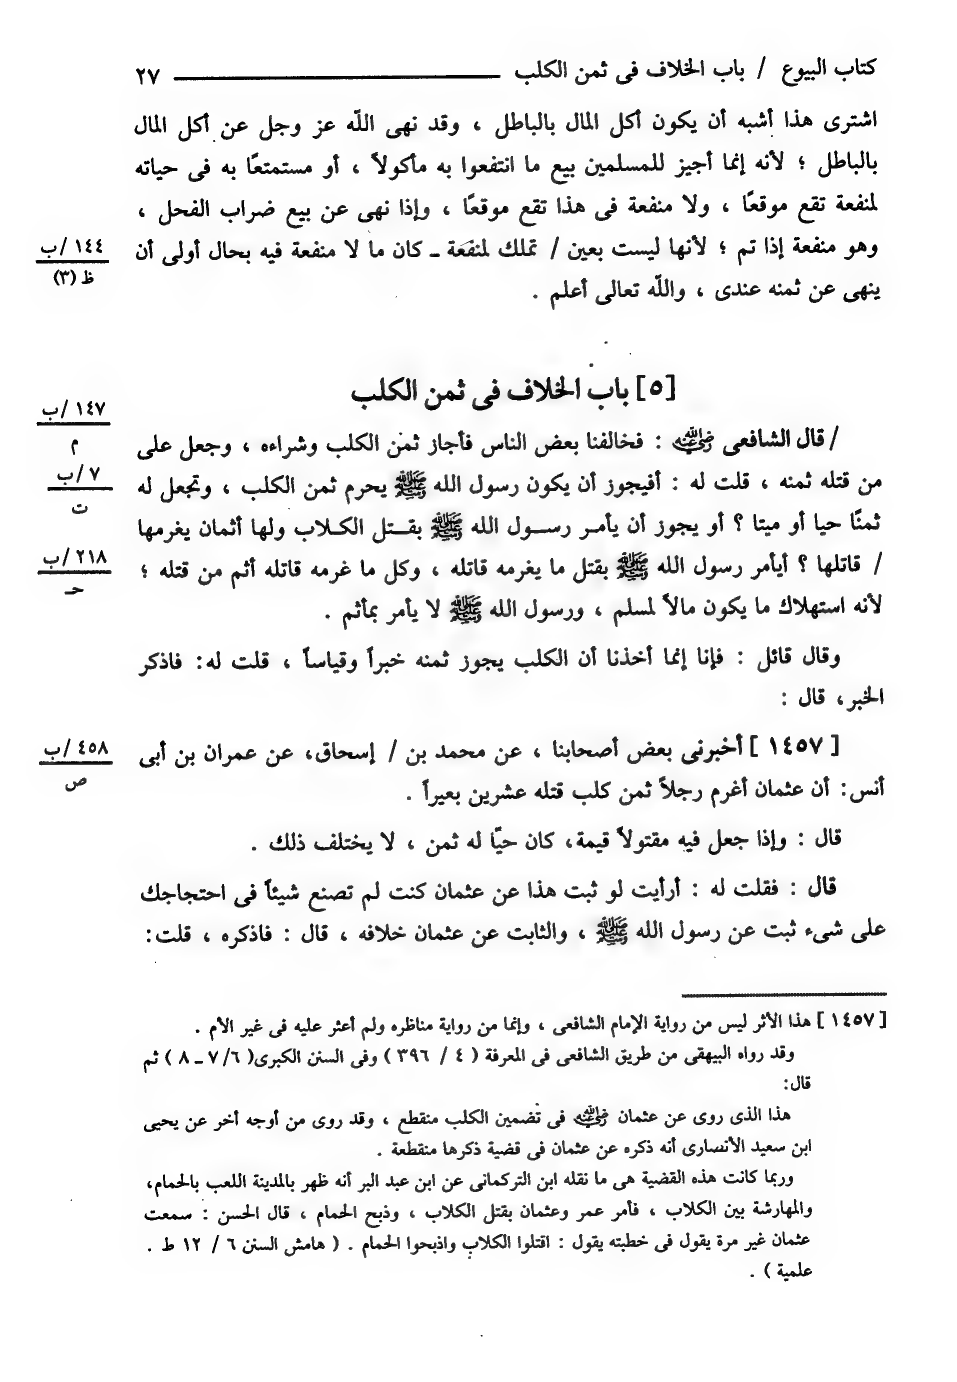 كتاب البيوع / باب الخلاف فى ثمن الكلب ــــــــ ٢٧
اشترى هذا أشبه أن يكون أكل المال بالباطل ، وقد نهى اللّه عز وجل عن أكل المال
بالباطل ؛ لأنه إنما أجيز للمسلمين بيع ما انتفعوا به مأكولاً ، أو مستمتعًا به فى حياته
لمنفعة تقع موقعًا ، ولا منفعة فى هذا تقع موقعًا ، وإذا نهى عن بيع ضراب الفحل ،
وهو منفعة إذا تم ؛ لأنها ليست بعين / تملك لمنفعة ـ كان ما لا منفعة فيه بحال أولى أن
١٤٤ /ب
ظ (٣)
ينهى عن ثمنه عندى ، واللّه تعالى أعلم .
[٥] باب الخلاف فى ثمن الكلب
١٤٧ /ب
م
/ قال الشافعى رضي الله عنه : فخالفنا بعض الناس فأجاز ثمن الكلب وشراءه ، وجعل على
٧ /ب
ت
من قتله ثمنه ، قلت له : أفيجوز أن يكون رسول الله ﷺ يحرم ثمن الكلب ، وتجعل له
ثمنًا حيا أو ميتا ؟ أو يجوز أن يأمر رســول الله ﷺ بقــتل الكـلاب ولها أثمان يغرمها
٢١٨ /ب
حـ
/ قاتلها ؟ أيأمر رسول الله ﷺ بقتل ما يغرمه قاتله ، وكل ما غرمه قاتله أثم من قتله ؛
لأنه استهلاك ما يكون مالاً لمسلم ، ورسول الله ﷺ لا يأمر بمأثم .
وقال قائل : فإنا إنما أخذنا أن الكلب يجوز ثمنه خبراً وقياساً ، قلت له: فاذكر
الخبر، قال :
[ ١٤٥٧ ] أخبرنى بعض أصحابنا ، عن محمد بن / إسحاق، عن عمران بن أبى
٤٥٨ /ب
ص
أنس: أن عثمان أغرم رجلاً ثمن كلب قتله عشرين بعيراً .
قال : وإذا جعل فيه مقتولاً قيمة، كان حيًا له ثمن ، لا يختلف ذلك .
قال : فقلت له : أرأيت لو ثبت هذا عن عثمان كنت لم تصنع شيئاً فى احتجاجك
على شىء ثبت عن رسول الله ﷺ ، والثابت عن عثمان خلافه ، قال : فاذكره ، قلت:
[ ١٤٥٧ ] هذا الأثر ليس من رواية الإمام الشافعى ، وإنما من رواية مناظره ولم أعثر عليه فى غير الأم .
وقد رواه البيهقى من طريق الشافعى فى المعرفة ( ٤ / ٣٩٦ ) وفى السنن الكبرى( ٦/ ٧ ـ ٨ ) ثم
قال:
هذا الذى روى عن عثمان رضي الله عنه فى تضمين الكلب منقطع ، وقد روى من أوجه أخر عن يحيى
ابن سعيد الأنصارى أنه ذكره عن عثمان فى قضية ذكرها منقطعة .
وربما كانت هذه القضية هى ما نقله ابن التركمانى عن ابن عبد البر أنه ظهر بالمدينة اللعب بالحمام،
والمهارشة بين الكلاب ، فأمر عمر وعثمان بقتل الكلاب ، وذبح الحمام ، قال الحسن : سمعت
عثمان غير مرة يقول فى خطبته يقول : اقتلوا الكلاب واذبحوا الحمام . ( هامش السنن ٦ / ١٢ ط .
علمية ) .